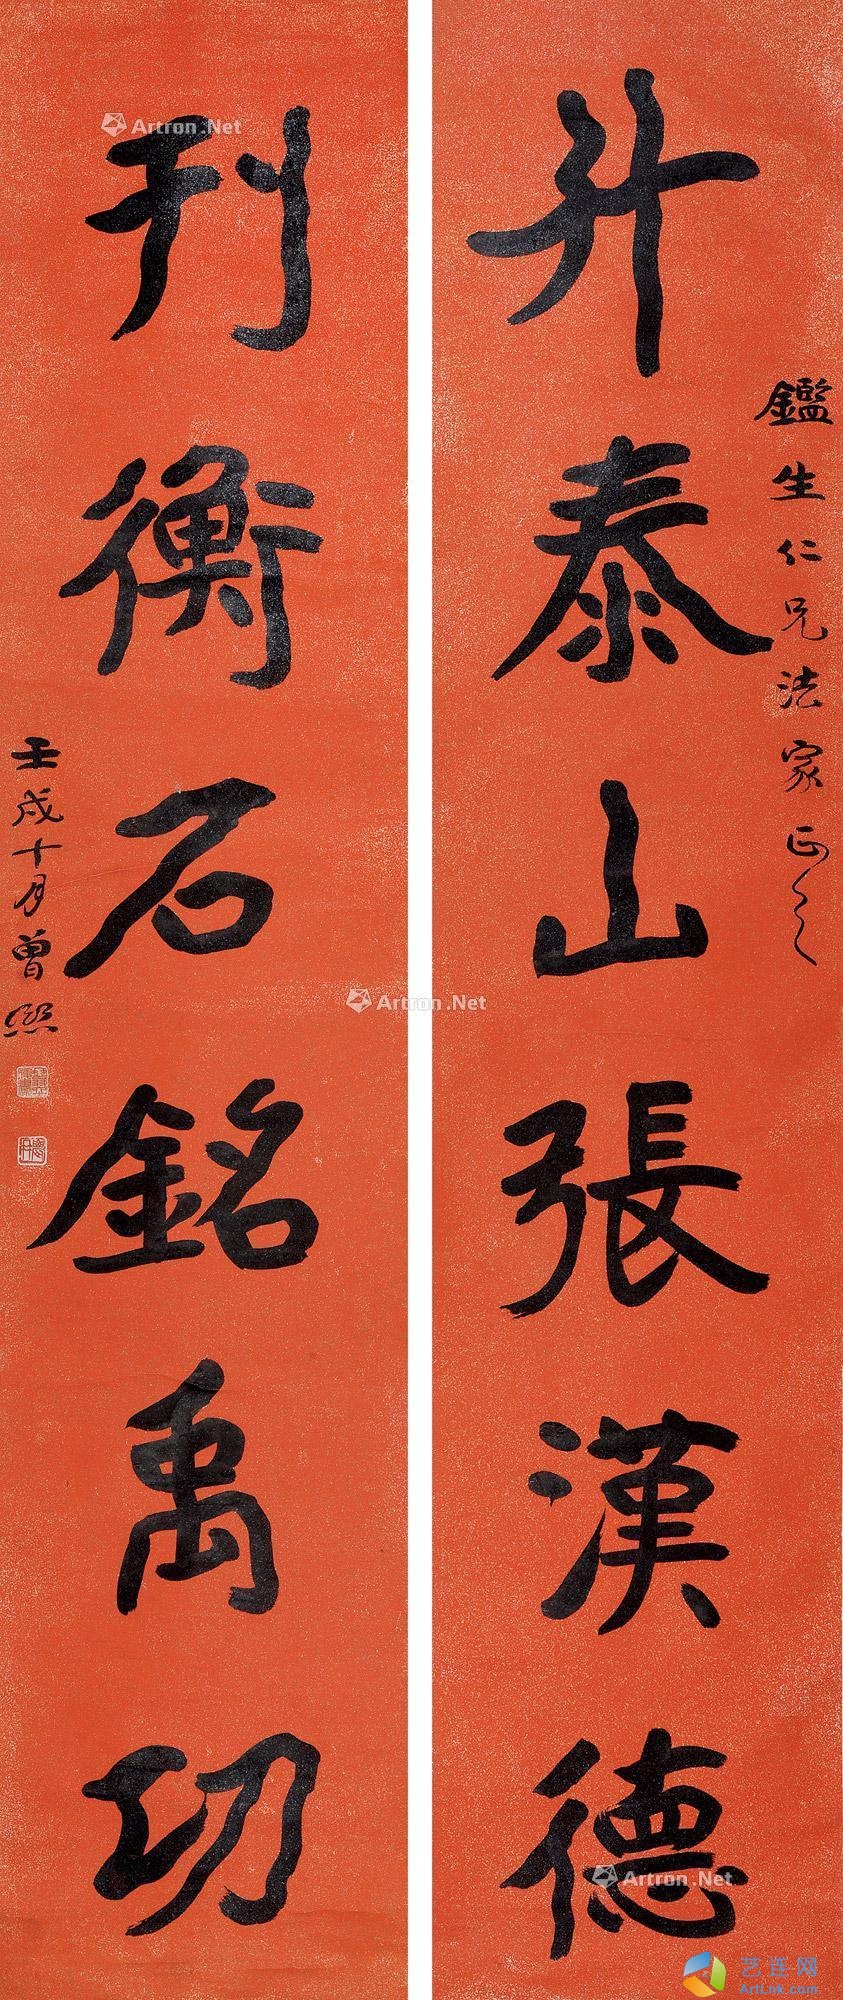 鑑生仁兄法家正之
升泰山張漢德
刊衡石銘禹功
壬戌十月曾熙
Artron.Net
Artron.Net
Artron.Net
艺连网
ArtLnk.com